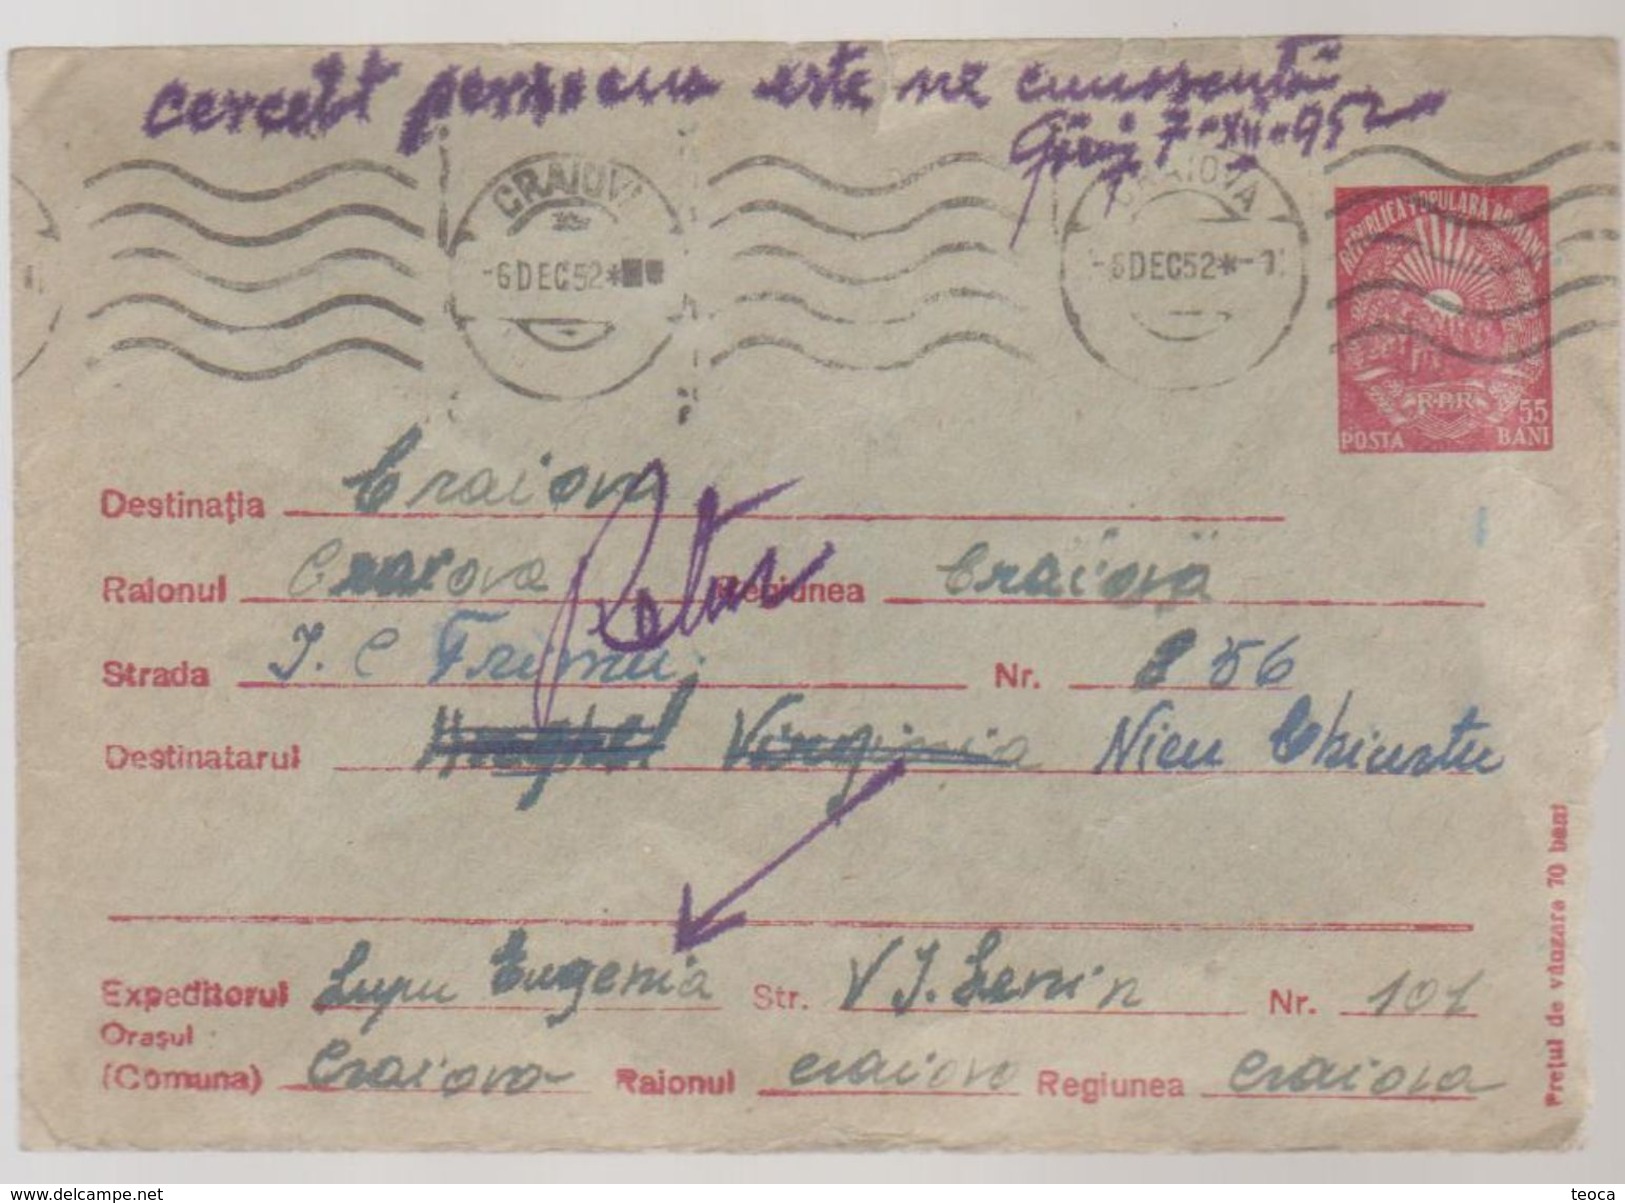 persoana este ne cunoscută
7-XII-952
CRAIOVA
CRAIOVA
-6DEC52*
-6DEC52*-1
REPUBLICA POPULARĂ ROMÂNĂ
R.P.R
55
POSTA BANI
Destinația Craiova
Raionul Craiova Regiunea Craiova
Retur
Strada I. C Frimu Nr. 256
Destinatarul Virginia Nicu
Expeditorul Lupu Eugenia Str. V I. Lenin Nr. 101
Orașul
(Comuna) Craiova Raionul craiova Regiunea Craiova
Prețul de vânzare 70 bani
delcampe.net
teoca